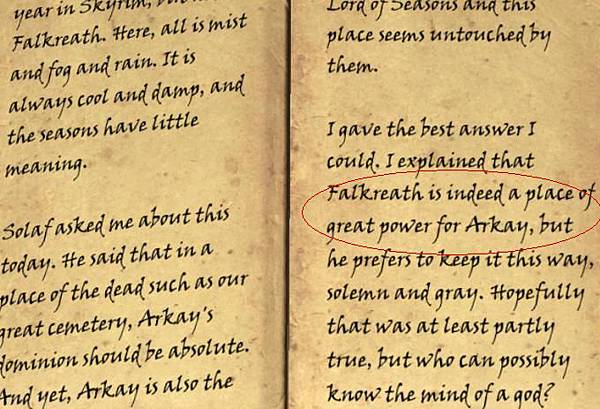 year in Skyrim, but
Falkreath. Here, all is mist
and fog and rain. It is
always cool and damp, and
the seasons have little
meaning.
Solaf asked me about this
today. He said that in a
place of the dead such as our
great cemetery, Arkay's
dominion should be absolute.
And yet, Arkay is also the
Lord of Seasons and this
place seems untouched by
them.
I gave the best answer I
could. I explained that
Falkreath is indeed a place of
great power for Arkay, but
he prefers to keep it this way,
solemn and gray. Hopefully
that was at least partly
true, but who can possibly
know the mind of a god?